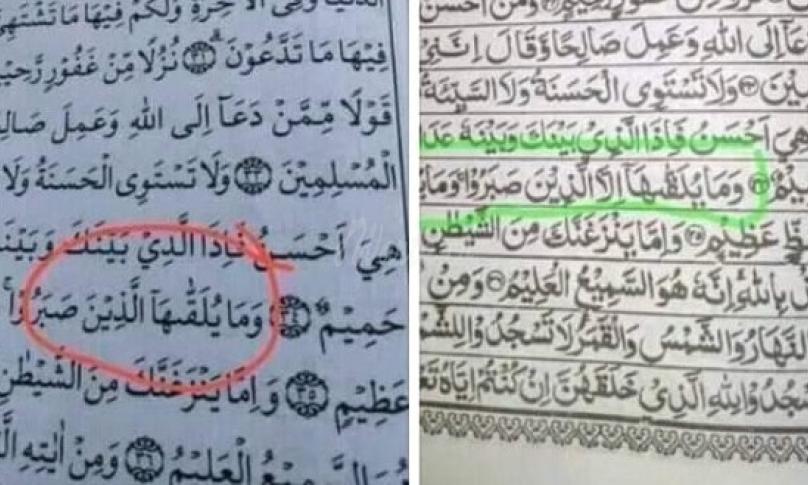 الدُّنْيَا وَفِي الْاٰخِرَةِ وَلَكُمْ فِيْهَا مَا تَشْتَهِيْ
فِيْهَا مَا تَدَّعُوْنَ ۗ ﴿٣١﴾ نُزُلًا مِّنْ غَفُوْرٍ رَّحِيْ
قَوْلًا مِّمَّنْ دَعَآ اِلَى اللهِ وَعَمِلَ صَالِ
الْمُسْلِمِيْنَ ﴿٣٣﴾ وَلَا تَسْتَوِى الْحَسَنَةُ وَلَا
هِيَ اَحْسَنُ فَاِذَا الَّذِيْ بَيْنَكَ وَبَيْنَ
حَمِيْمٌ ﴿٣٤﴾ وَمَا يُلَقّٰىهَآ الَّذِيْنَ صَبَرُوْا ۚ
عَظِيْمٍ ﴿٣٥﴾ وَاِمَّا يَنْزَغَنَّكَ مِنَ الشَّيْطٰنِ
السَّمِيْعُ الْعَلِيْمُ ﴿٣٦﴾ وَمِنْ اٰيٰتِهِ الَّ
وَمَنْ اَحْسَنُ
عَآ اِلَى اللهِ وَعَمِلَ صَالِحًا وَّقَالَ اِنَّنِيْ
يْنَ ﴿٣٣﴾ وَلَا تَسْتَوِى الْحَسَنَةُ وَلَا السَّيِّئَةُ
هِيَ اَحْسَنُ فَاِذَا الَّذِيْ بَيْنَكَ وَبَيْنَهٗ عَدَا
يْمٌ ﴿٣٤﴾ وَمَا يُلَقّٰىهَآ اِلَّا الَّذِيْنَ صَبَرُوْا ۚ وَمَا يُ
حَظٍّ عَظِيْمٍ ﴿٣٥﴾ وَاِمَّا يَنْزَغَنَّكَ مِنَ الشَّيْطٰنِ
بِاللهِ ۗ اِنَّهٗ هُوَ السَّمِيْعُ الْعَلِيْمُ ﴿٣٦﴾ وَمِنْ
النَّهَارُ وَالشَّمْسُ وَالْقَمَرُ ۗ لَا تَسْجُدُوْا لِلشَّمْ
جُدُوْا لِلهِ الَّذِيْ خَلَقَهُنَّ اِنْ كُنْتُمْ اِيَّاهُ تَعْ